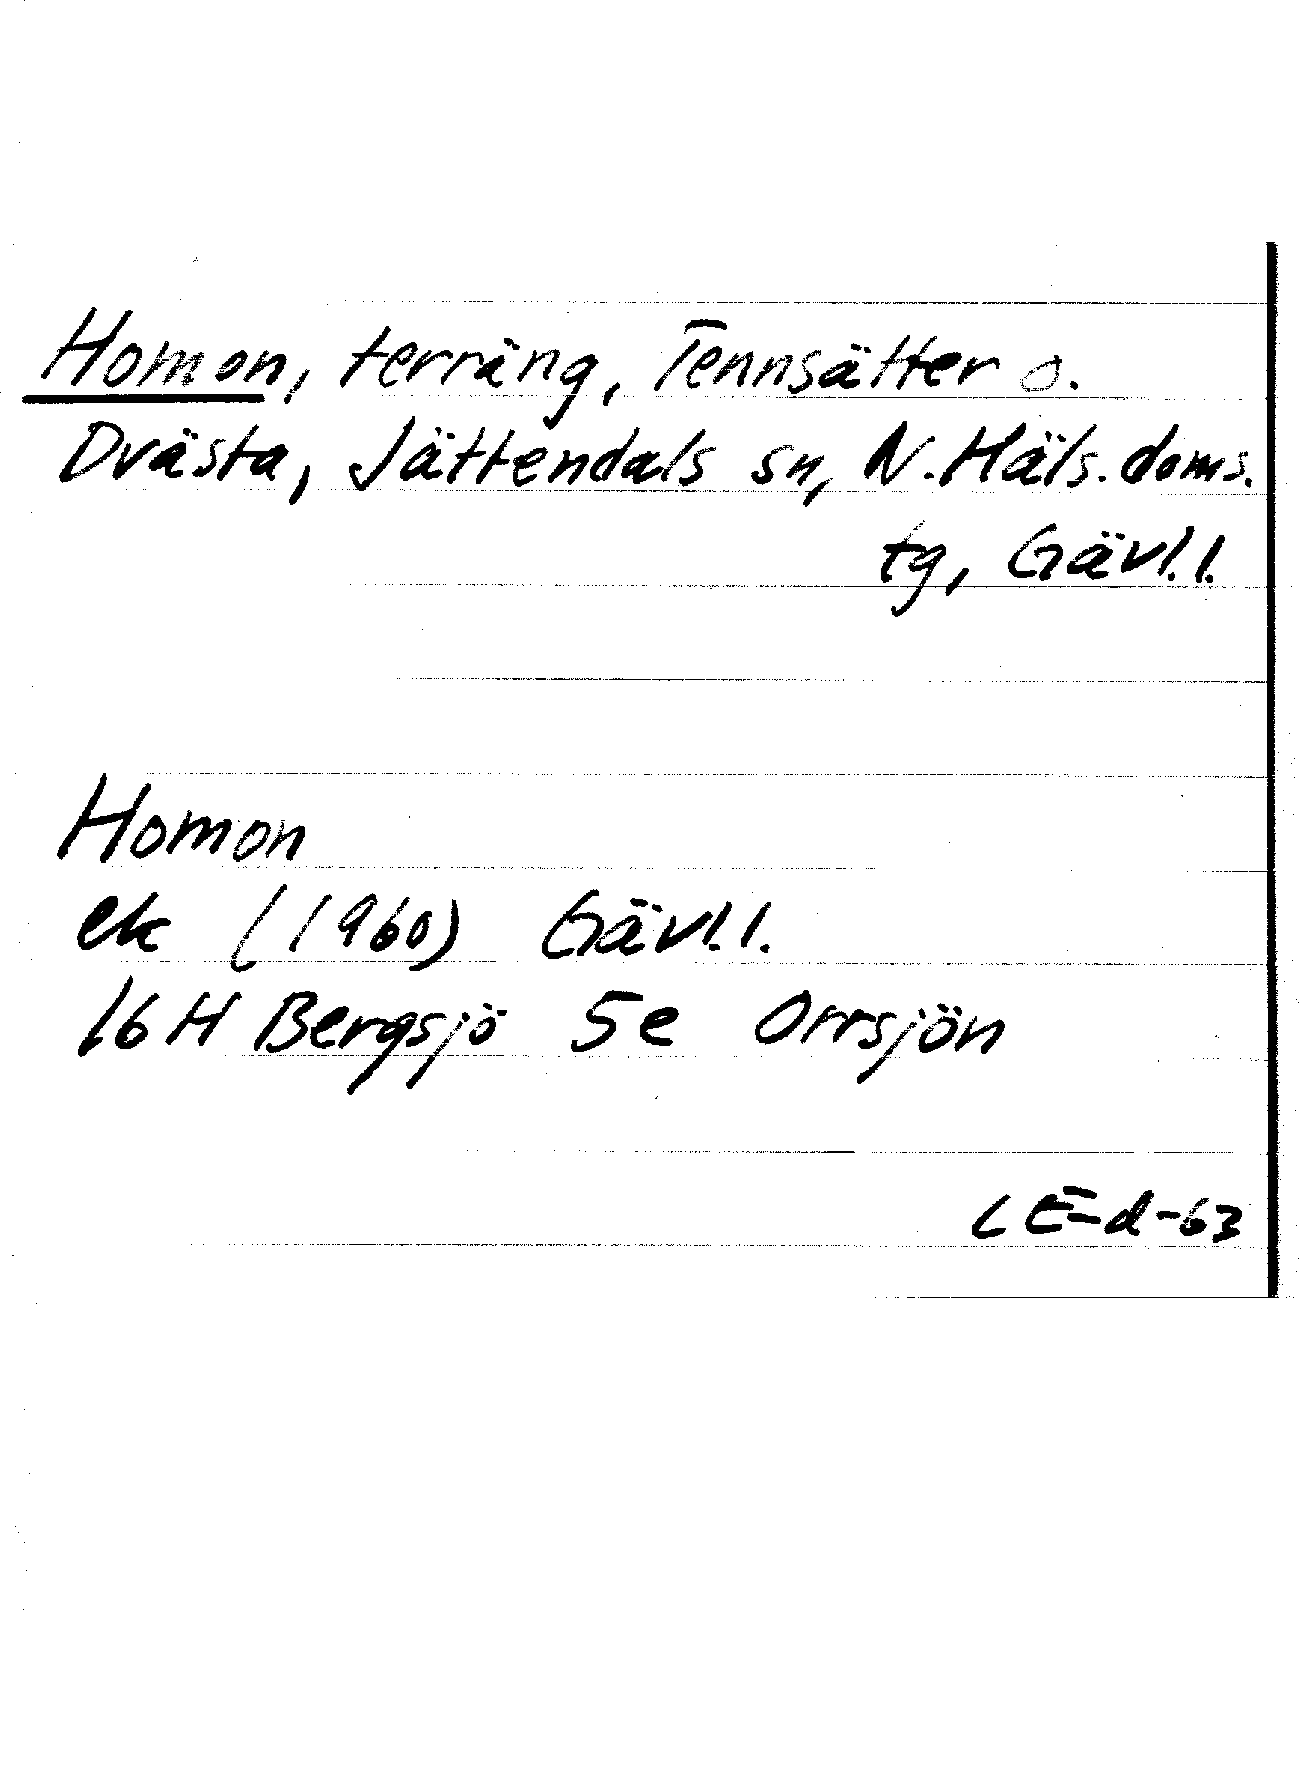 Homon, terräng, Tennsätter o.
Dvästa, Jättendals sn, N. Häls. doms.
tg, Gävl.l.
Homon
ek (1960) Gävl.l.
16 H Bergsjö 5e Orrsjön
LE-d-63